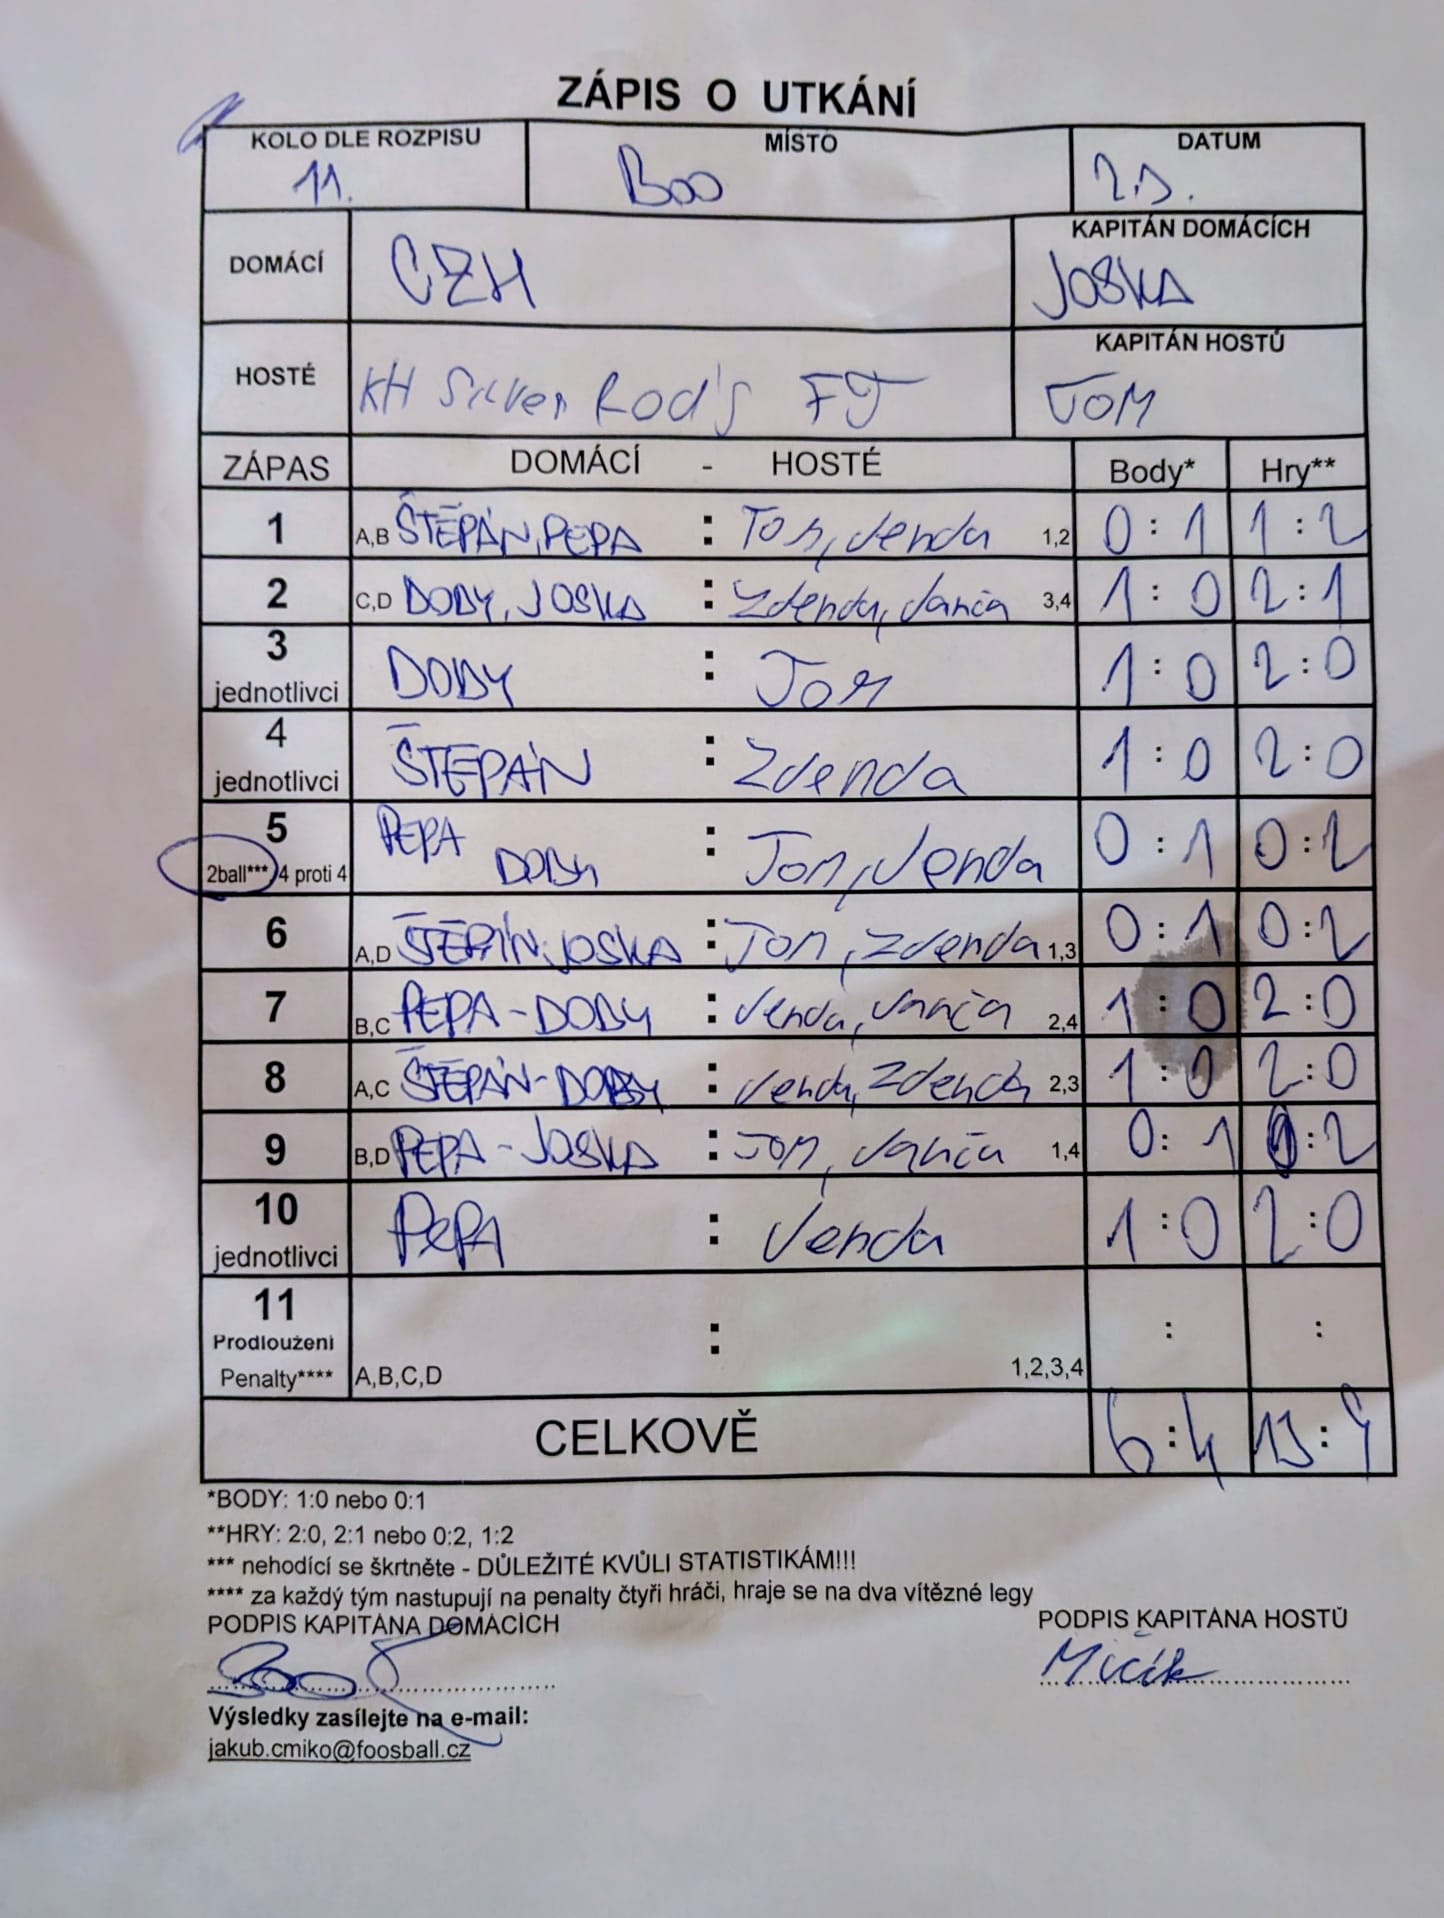 ZÁPIS O UTKÁNÍ
KOLO DLE ROZPISU MÍSTO DATUM
11. Boo
DOMÁCÍ CZH KAPITÁN DOMÁCÍCH
JOSKA
HOSTÉ KH Silver Rod's FT KAPITÁN HOSTŮ
TOM
ZÁPAS DOMÁCÍ - HOSTÉ Body* Hry**
1 A,B ŠTĚPÁN, PEPA : Tom, Venda 1,2 0:1 1:2
2 C,D DOBY, JOSKA : Zdenda, Vanča 3,4 1:0 2:1
3 jednotlivci DOBY : Tom 1:0 2:0
4 jednotlivci ŠTĚPÁN : Zdenda 1:0 2:0
5 2ball*** 4 proti 4 PEPA DOBY : Tom, Venda 0:1 0:2
6 A,D ŠTĚPÁN, JOSKA : Tom, Zdenda 1,3 0:1 0:2
7 B,C PEPA - DOBY : Venda, Vanča 2,4 1:0 2:0
8 A,C ŠTĚPÁN - DOBY : Venda, Zdenda 2,3 1:0 2:0
9 B,D PEPA - JOSKA : Tom, Vanča 1,4 0:1 :2
10 jednotlivci PEPA : Venda 1:0 2:0
11 Prodloužení : : :
Penalty**** A,B,C,D 1,2,3,4
CELKOVĚ 6:4 13:9
*BODY: 1:0 nebo 0:1
**HRY: 2:0, 2:1 nebo 0:2, 1:2
*** nehodící se škrtněte - DŮLEŽITÉ KVŮLI STATISTIKÁM!!!
**** za každý tým nastupují na penalty čtyři hráči, hraje se na dva vítězné legy
PODPIS KAPITÁNA DOMÁCÍCH PODPIS KAPITÁNA HOSTŮ
Mičík
Výsledky zasílejte na e-mail:
jakub.cmiko@foosball.cz